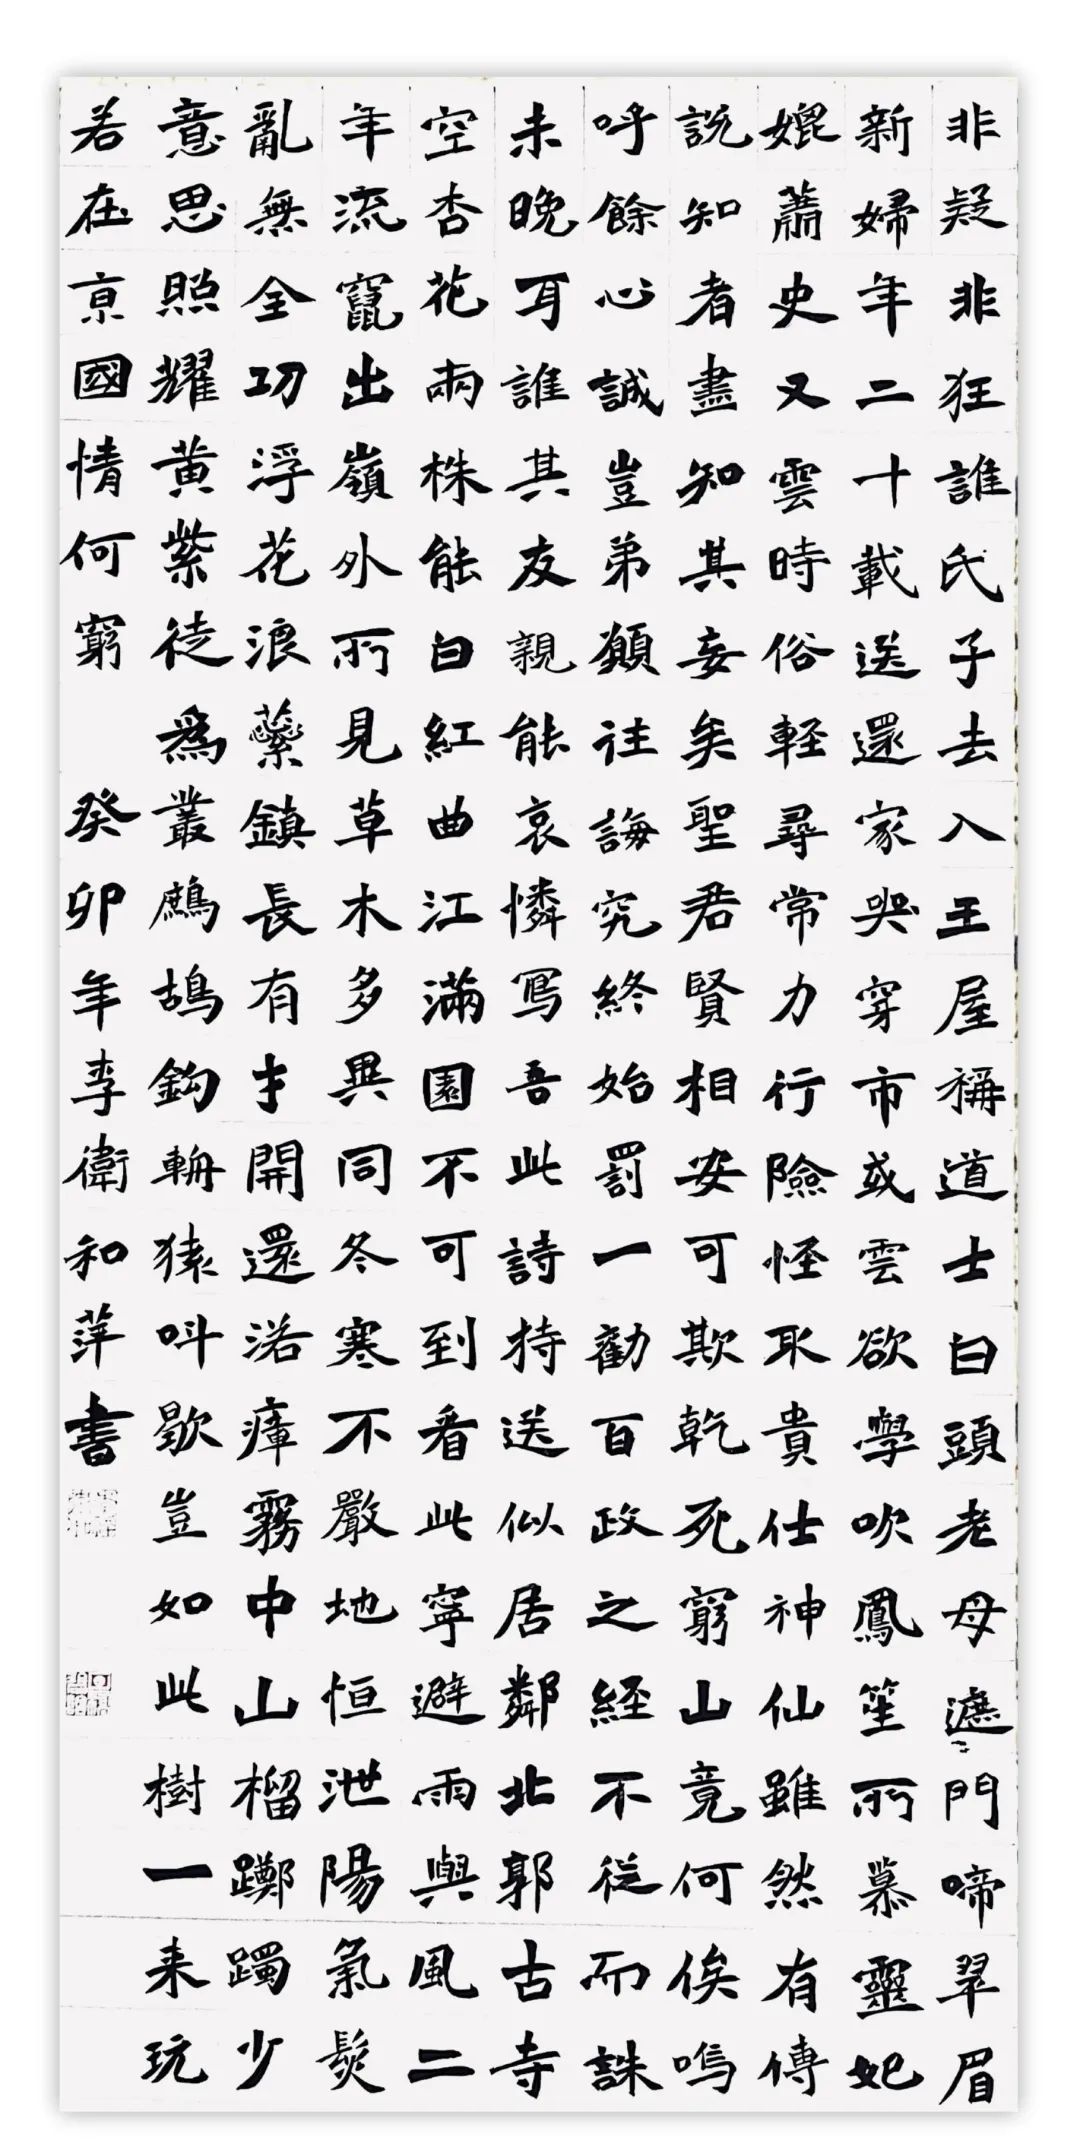 非疑非狂誰氏子去入王屋稱道士白頭老母遮門啼翠眉
新婦年二十載送還家哭穿市或雲欲學吹鳳笙所慕靈妃
媲蕭史又雲時俗輕尋常力行險怪取貴仕神仙雖然有傳
說知者盡知其妄矣聖君賢相安可欺乾死窮山竟何俟嗚
呼餘心誠豈弟願往誨究終始罰一勸百政之經不從而誅
未晚耳誰其友親能哀憐寫吾此詩持送似居鄰北郭古寺
空杏花兩株能白紅曲江滿園不可到看此寧避雨與風二
年流竄出嶺外所見草木多異同冬寒不嚴地恒泄陽氣髮
亂無全功浮花浪蘂鎮長有才開還落瘴霧中山榴躑躅少
意思照耀黃紫徒為叢鷓鴣鈎輈猿叫歇豈如此樹一来玩
若在京國情何窮 癸卯年李衛和萍書